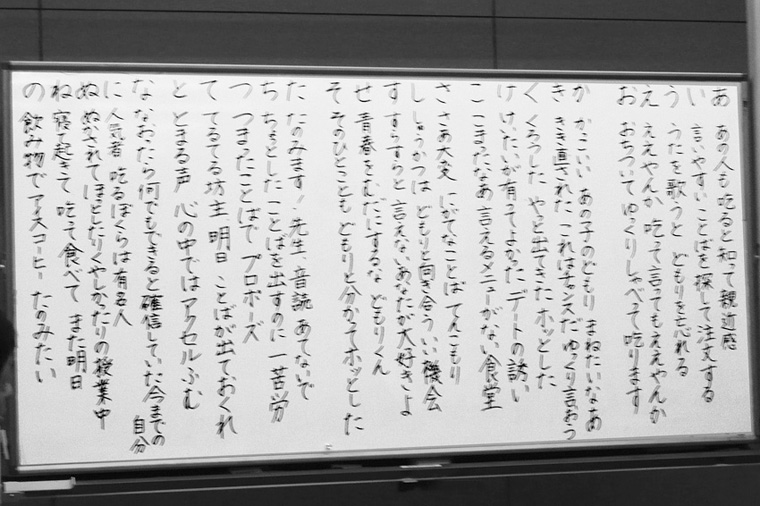 あ あの人も吃ると知って親近感
い 言いやすいことばを探して注文する
う うたを歌うと どもりを忘れる
え ええやんか 吃って言ってもええやんか
お おちついてゆっくりしゃべって吃ります
か かっこいい あの子のどもり まねたいなあ
き きき直された これはチャンスだ ゆっくり言おう
く くろうした やっと出てきた ホッとした
け けいたいが有ってよかった デートの誘い
こ こまったなあ 言えるメニューがない食堂
さ さあ大変 にがてなことば てんこもり
し しゅうかつは どもりと向き合う いい機会
す すらすらと 言えないあなたが大好きよ
せ 青春をむだにするな どもりくん
そ そのひとことも どもりと分かってホッとした
た たのみます! 先生、音読 あてないで
ち ちょっとした ことばを出すのに 一苦労
つ つまったことばで プロポーズ
て てるてる坊主 明日 ことばが出ておくれ
と とまる声 心の中ではアクセルふむ
な なおったら何でもできると確信していた今までの自分
に 人気者 吃るぼくらは有名人
ぬ ぬかされてほっとしたりくやしかったりの授業中
ね 寝て起きて 吃って食べて また明日
の 飲み物で アイスコーヒー たのみたい